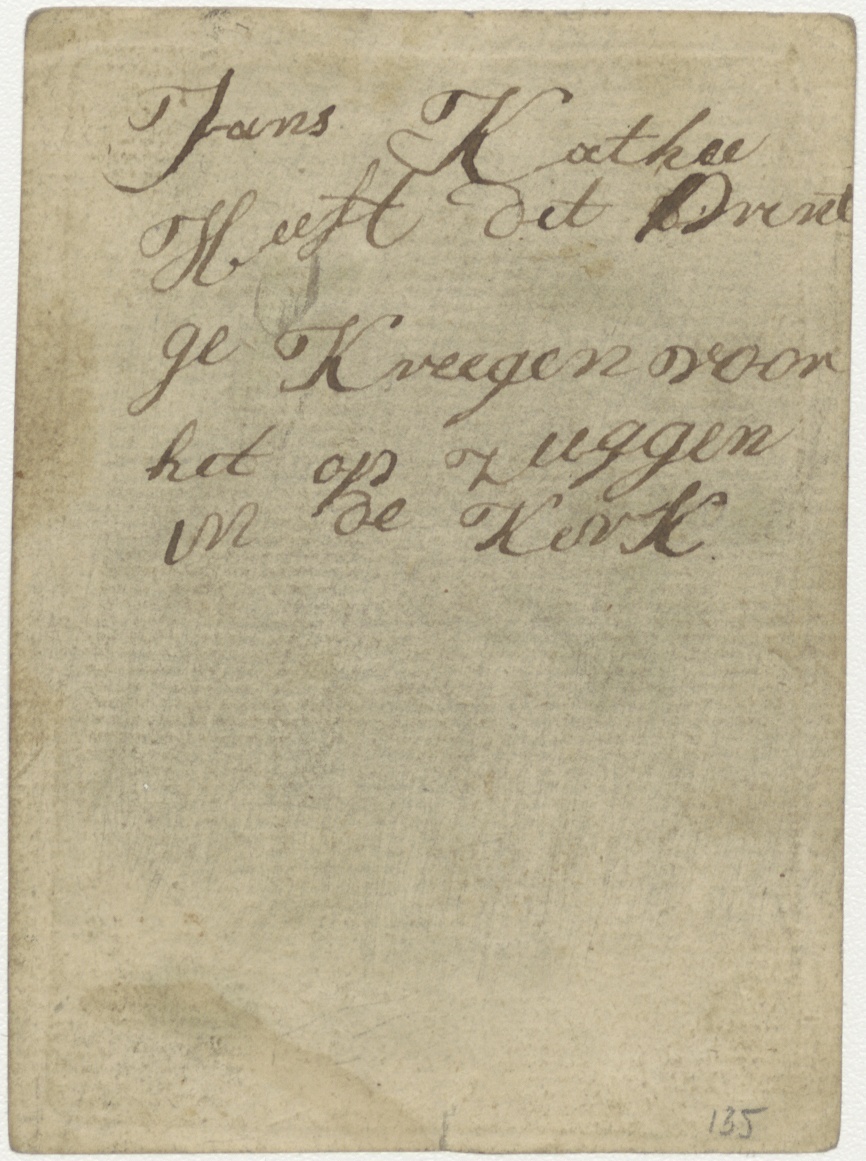 Jans Kathee
Heeft dit Prent
ge Kreegen voor
het op zuggen
in de Kerk
135